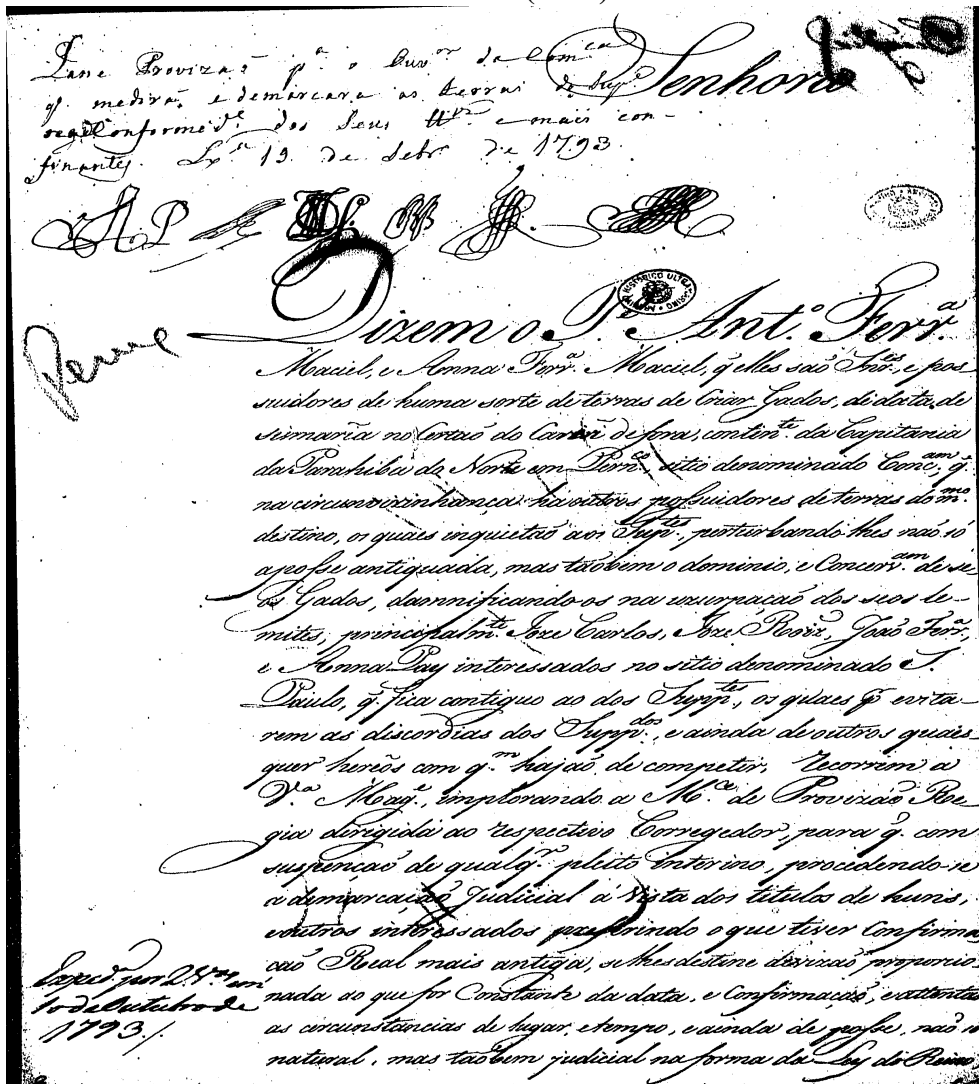 Passe Provizaõ p.ª o Ouv.or da Com.ca
q. medira, e demarcara as terras do Supp.e
conforme os seus tt.os e mais con-
finantes. Lx.ª 19 de Setbr.º de 1793.
Senhora
Pernco
Dizem o P.e Ant.º Ferr.ª
Maciel, e Anna Ferr.ª Maciel, q̃ elles saõ Snr.es, e pos-
suidores de huma sorte de terras de Criar Gados, de data de
sesmaria no Certaõ do Carirî de fora, contin.te da Capitania
da Parahiba do Norte em Pern.co, sitio denominado Conc.am, q̃
na circunvizinhança ha outros possuidores de terras do m.mo
destino, os quaes inquietaõ aos Supp.tes, perturbando lhes naõ so
a posse antiquada, mas taõbem o dominio, e Concerv.am de se-
os Gados, damnificando-os na uzurpaçaõ dos seos le-
mites, principalm.te Joze Carlos, Joze Roiz, Joaõ Ferr.ª,
e Anna Pay interessados no sitio denominado S.
Paulo, q̃ fica contiguo ao dos Supp.tes, os quaes p.ª evita-
rem as discordias dos Supp.dos, e ainda de outros quaes-
quer hereos com q.m hajaõ de competir, recorrem a
V.ª Mag.e, implorando a M.ce de Provizaõ Re-
gia dirigida ao respectivo Corregedor, para q̃ com
suspençaõ de qualq.r pleito interino, procedendo-se
a demarcaçaõ Judicial á vista dos titulos de huns,
e outros interessados preferindo o que tiver Confirma
çaõ Real mais antiga, se lhes destine divizaõ proporcio
nada ao que for Constante da data, e Confirmaçaõ, e attentas
as circunstancias de lugar, e tempo, e ainda de posse, naõ so
natural, mas taõbem judicial na forma da Ley do Reino
Exped.º por 2 V.as em
10 de Outubro de
1793/.